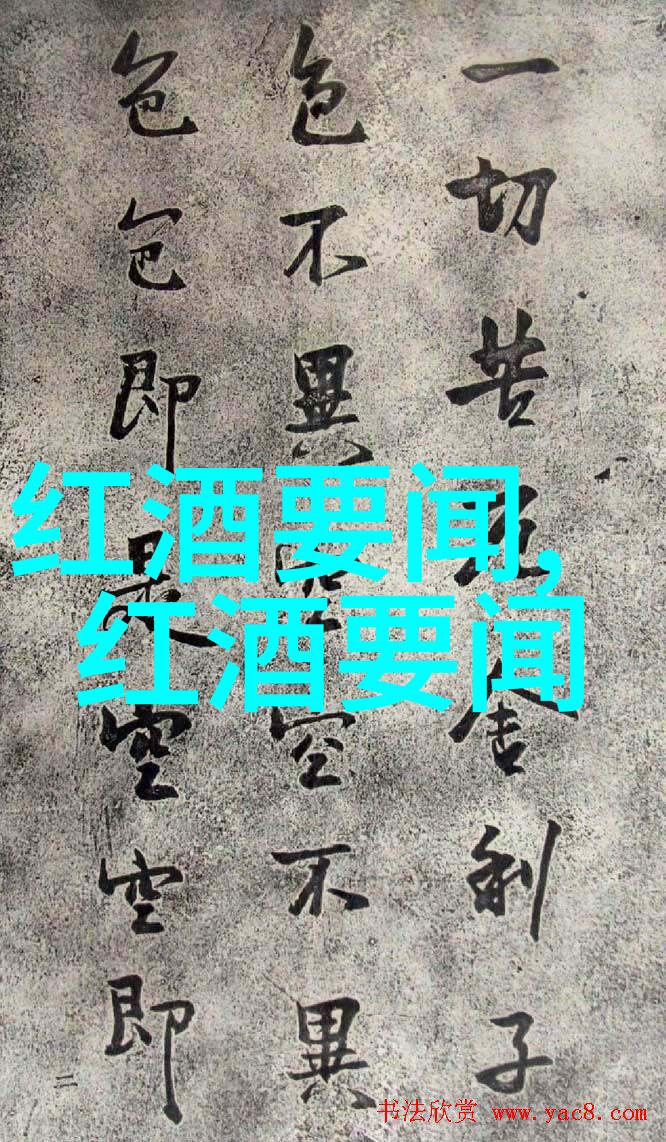 一切苦厄舍利子
色不異空空不異
色色即是空空即
二
红酒要闻,
红酒要闻
书法欣赏 www.yac8.com